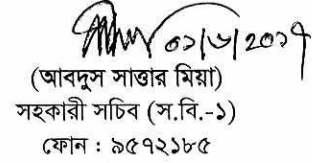 ০১/৬/২০১৭
(আবদুস সাত্তার মিয়া)
সহকারী সচিব (স.বি.-১)
ফোন : ৯৫৭২১৮৫